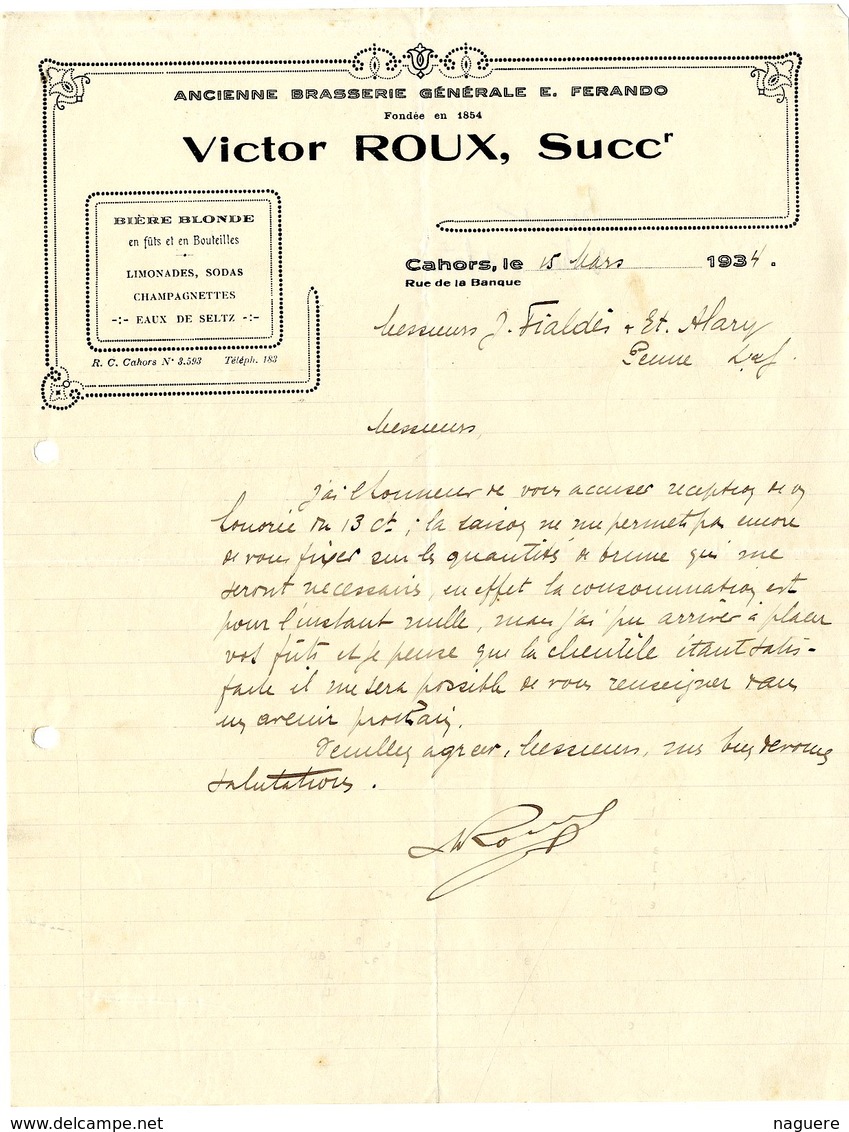 ANCIENNE BRASSERIE GÉNÉRALE E. FERANDO
Fondée en 1854
Victor ROUX, Succr
BIÈRE BLONDE
en fûts et en Bouteilles
LIMONADES, SODAS
CHAMPAGNETTES
-:- EAUX DE SELTZ -:-
R. C. Cahors N° 3.593 Téléph. 183
Cahors, le 15 Mars 1934.
Rue de la Banque
Messieurs J. Fialdès & Et. Alary
Penne
Messieurs,
J'ai l'honneur de vous accuser reception de v
honorée du 13 ct; la saison ne me permet pas encore
de vous fixer sur les quantités de brune qui me
seront necessaires, en effet la consommation est
pour l'instant nulle, mais j'ai pu arriver à placer
vos fûts et je pense que la clientèle étant satis-
faite il me sera possible de vous renseigner dans
un avenir prochain.
Veuillez agreer, Messieurs, mes bien devoués
salutations.
Roux
naguere